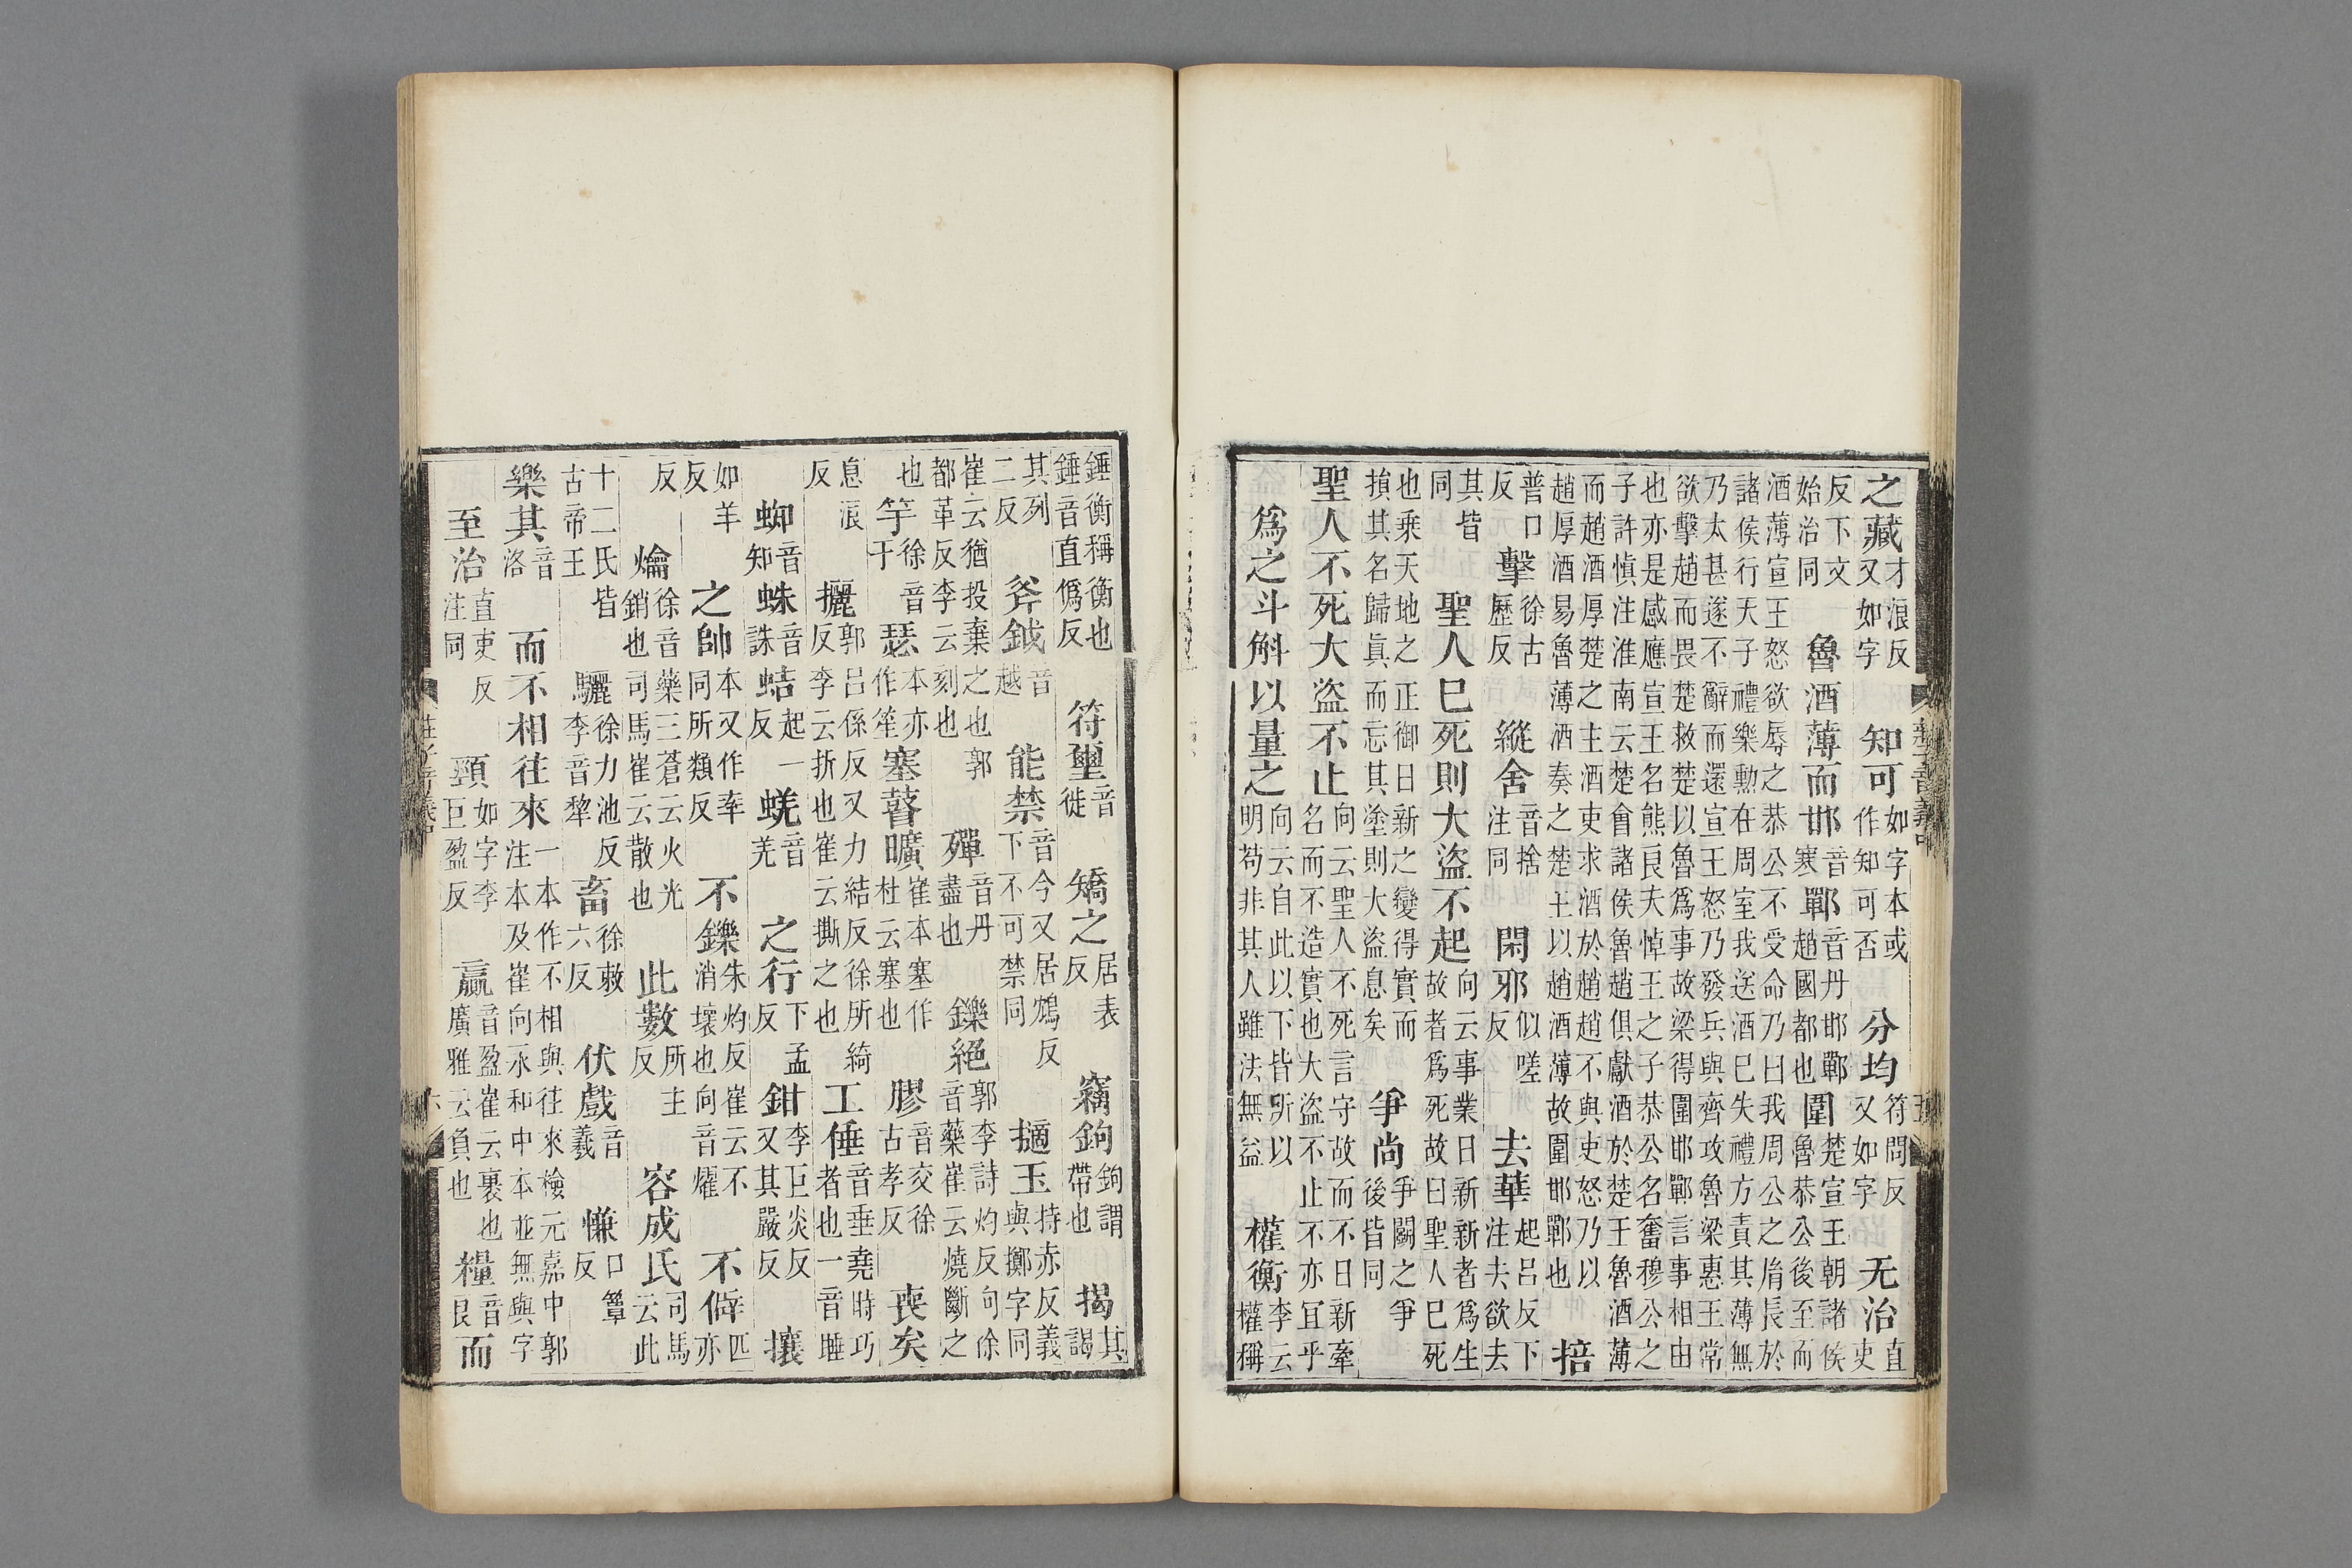 之藏才浪反又如字 知可如字本或作知可否 分均符問反又如字 无治直吏
反下文始治同 魯酒薄而邯音寒鄲音丹邯鄲趙國都也圍楚宣王朝諸侯魯恭公後至而
酒薄宣王怒欲辱之恭公不受命乃曰我周公之胄長於
諸侯行天子禮樂勳在周室我送酒已失禮方責其薄無
乃太甚遂不辭而還宣王怒乃發兵與齊攻魯梁惠王常
欲擊趙而畏楚救楚以魯爲事故梁得圍邯鄲言事相由
也亦是感應宣王名熊良夫悼王之子恭公名奮穆公之
子許慎注淮南云楚會諸侯魯趙俱獻酒於楚王魯酒薄
而趙酒厚楚之主酒吏求酒於趙趙不與吏怒乃以
趙厚酒易魯薄酒奏之楚王以趙酒薄故圍邯鄲也 掊
普口反 擊徐古歷反 縱舍音捨注同 閑邪似嗟反 去華起呂反下注去欲去
其皆同 聖人已死則大盜不起向云事業日新新者爲生故者爲死故曰聖人已死
也乘天地之正御日新之變得實而損其名歸眞而忘其塗則大盜息矣 爭尚爭鬭之爭後皆同
聖人不死大盜不止向云聖人不死言守故而不日新牽名而不造實也大盜不止不亦宜乎
爲之斗斛以量之向云自此以下皆所以明苟非其人雖法無益 權衡李云權稱
錘衡稱衡也錘音直僞反 符璽音徙 矯之居表反 竊鉤鉤謂帶也 揭其謁
其列二反 斧鉞音越 能禁音今又居鴆反下不可禁同 擿玉持赤反義與擲字同
崔云猶投棄之也郭都革反李云刻也 殫音丹盡也 鑠絕郭李詩灼反向徐音藥崔云燒斷之
也 竽徐音于 瑟本亦作笙 塞瞽曠崔本塞作杜云塞也 膠音交徐古孝反 喪矣
息浪反 攦郭呂係反又力結反徐所綺反李云折也崔云撕之也 工倕音垂堯時巧者也一音睡
蜘音知 蛛音誅 蛣起一反 蜣音羌 之行下孟反 鉗李巨炎反又其嚴反 攘
如羊反 之帥本又作率同所類反 不鑠朱灼反崔云不消壞也向音燿 不僻匹亦
反 爚徐音藥三蒼云火光銷也司馬崔云散也 此數所主反 容成氏司馬云此
十二氏皆古帝王 驪徐力池反李音犂 畜徐敕六反 伏戲音羲 慊口簟反
樂其音洛 而不相往來一本作不相與往來檢元嘉中郭注本及崔向永和中本並無與字
至治直吏反注同 頸如字李巨盈反 贏音盈崔云裹也廣雅云負也 糧音良 而